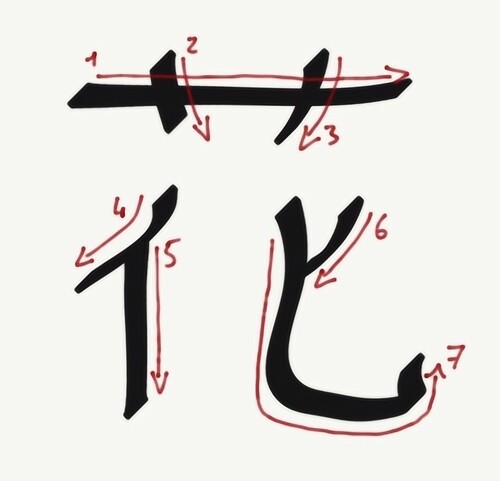 花
1
2
3
4
5
6
7